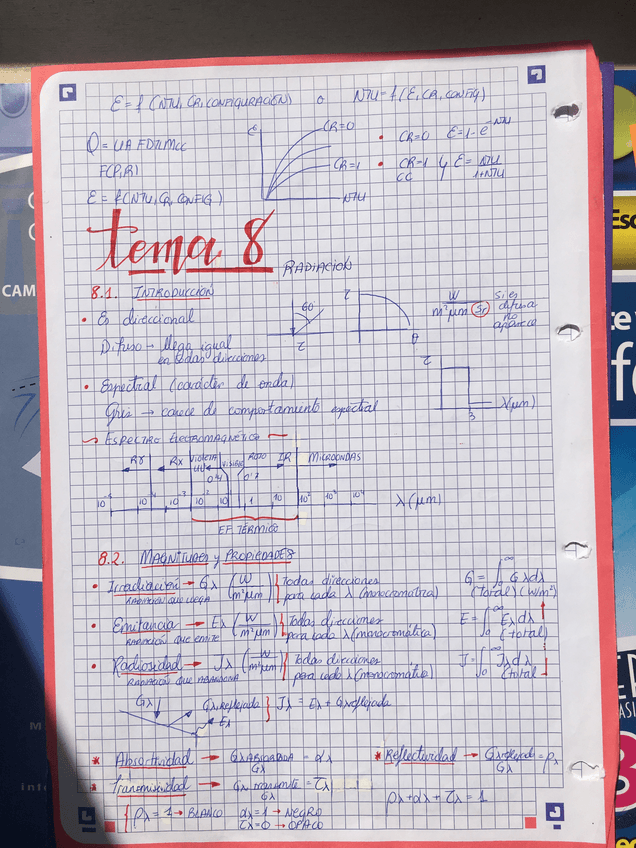 E = f (NTU, CR, CONFIGURACIÓN) o NTU = f (E, CR, CONFIG)
Q = UA FDTLMCC
F(P,R)
E = f(NTU, CR, CONFIG)
E
CR=0
CR=1
NTU
• CR=0 E=1-e^-NTU
• CR=1 y E= NTU/1+NTU
CC
tema 8
RADIACIÓN
8.1. INTRODUCCIÓN
• Es direccional
Difuso → llega igual
en todas direcciones
60
τ
τ
θ
W/m²μm Sr
si es
difusa
no
aparece
• Espectral (carácter de onda)
Gris → carece de comportamiento espectral
τ
3
λ(μm)
ESPECTRO ELECTROMAGNÉTICO
Rγ RX VIOLETA UV VISIBLE ROJO IR MICROONDAS
0'4 0'7
1 10 10² 10³ 10⁴
λ (μm)
EF. TÉRMICO
8.2. MAGNITUDES y PROPIEDADES
• Irradiación → Gλ (W/m²μm) Todas direcciones
RADIACIÓN QUE LLEGA para cada λ (monocromática)
G = ∫₀^∞ Gλdλ
(Total) (W/m²)
• Emitancia → Eλ (W/m²μm) Todas direcciones
RADIACIÓN QUE EMITE para cada λ (monocromática)
E = ∫₀^∞ Eλdλ
(total)
• Radiosidad → Jλ (W/m²μm) Todas direcciones
RADIACIÓN QUE ABANDONA para cada λ (monocromática)
J = ∫₀^∞ Jλdλ
(total
Gλ
Gλ reflejada
Eλ
Jλ = Eλ + Gλ reflejada
* Absortividad → Gλ ABSORBIDA/Gλ = αλ
* Reflectividad → Gλ reflejada/Gλ = ρλ
* Transmisividad → Gλ transmite/Gλ = τλ
ρλ + αλ + τλ = 1
ρλ = 1 → BLANCO αλ = 1 → NEGRO
τλ = 0 → OPACO
CAM
Esc